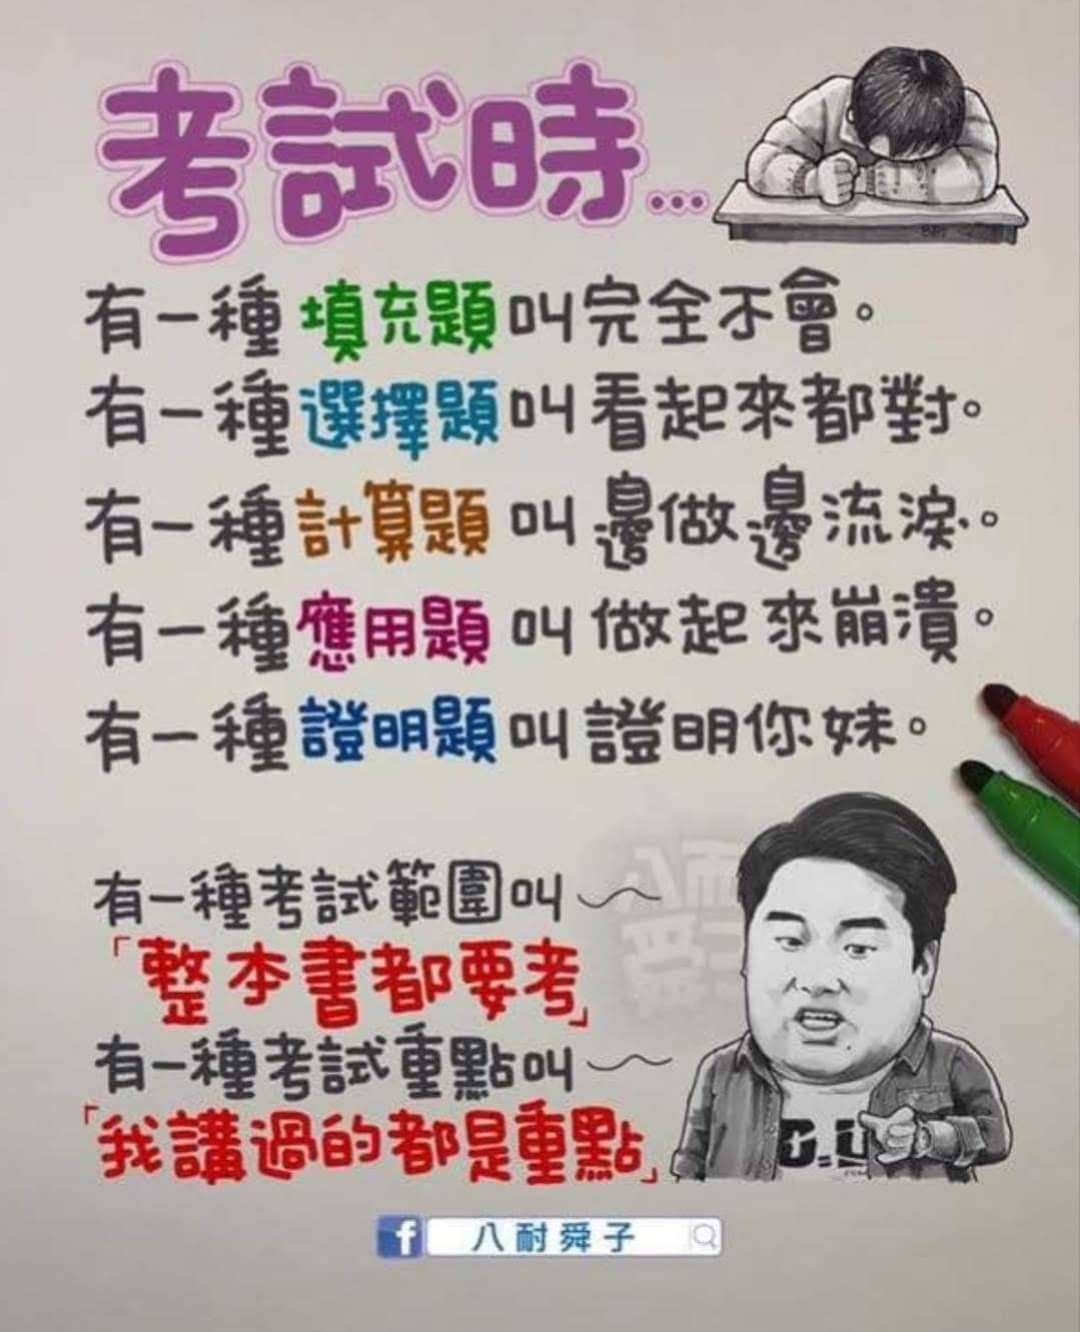 考試時...
有一種填充題叫完全不會。
有一種選擇題叫看起來都對。
有一種計算題叫邊做邊流淚。
有一種應用題叫做起來崩潰。
有一種證明題叫證明你妹。
有一種考試範圍叫～
「整本書都要考」
有一種考試重點叫～
「我講過的都是重點」
f 八耐舜子